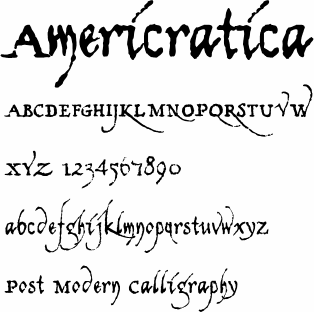 Americratica
ABCDEFGHIJKLMNOPQRSTUVW
XYZ 1234567890
abcdefghijklmnopqrstuvwxyz
Post Modern Calligraphy